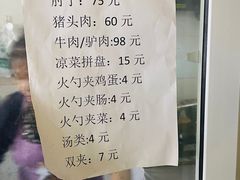 肘子：75 元
猪头肉：60 元
牛肉/驴肉:98 元
凉菜拼盘：15 元
火勺夹鸡蛋:4 元
火勺夹肠：4 元
火勺夹菜：4 元
汤类:4 元
双夹：7 元